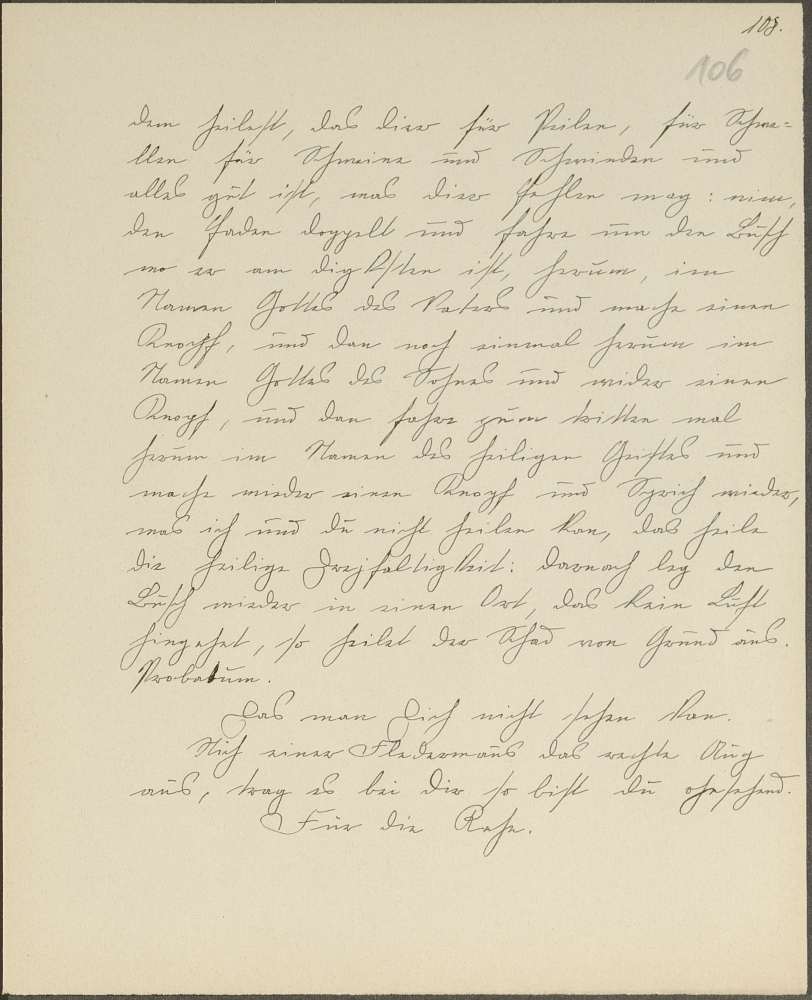 108.
106
dem heilest, das dier für Peilen, für Schwe=
llen für Schweine und Schwinden und
alles gut ist, was dier fehlen mag: nim,
den Faden doppelt und fahre um den Busch
wo er am digksten ist, herum, im
Namen Gottes des Vaters und mache einen
Knopff, und dan noch einmal herum im
Namen Gottes des Sohnes und wider einen
Knopf, und dan fahre zum tritten mal
herum im Namen des heiligen Geistes und
mache wieder einen Knopf und Sprich wieder,
was ich und du nicht heilen kan, das heile
die heilige Dreifaltigkeit: darnach leg den
Busch wieder in einen Ort, das kein Luft
hingehet, so heilet der Schad von Grund aus.
Probatum.
Das man Dich nicht sehen kan.
Stich einer Fledermaus das rechte Aug
aus, trag es bei dir so bist du ohnsehend.
Für die Rehe.